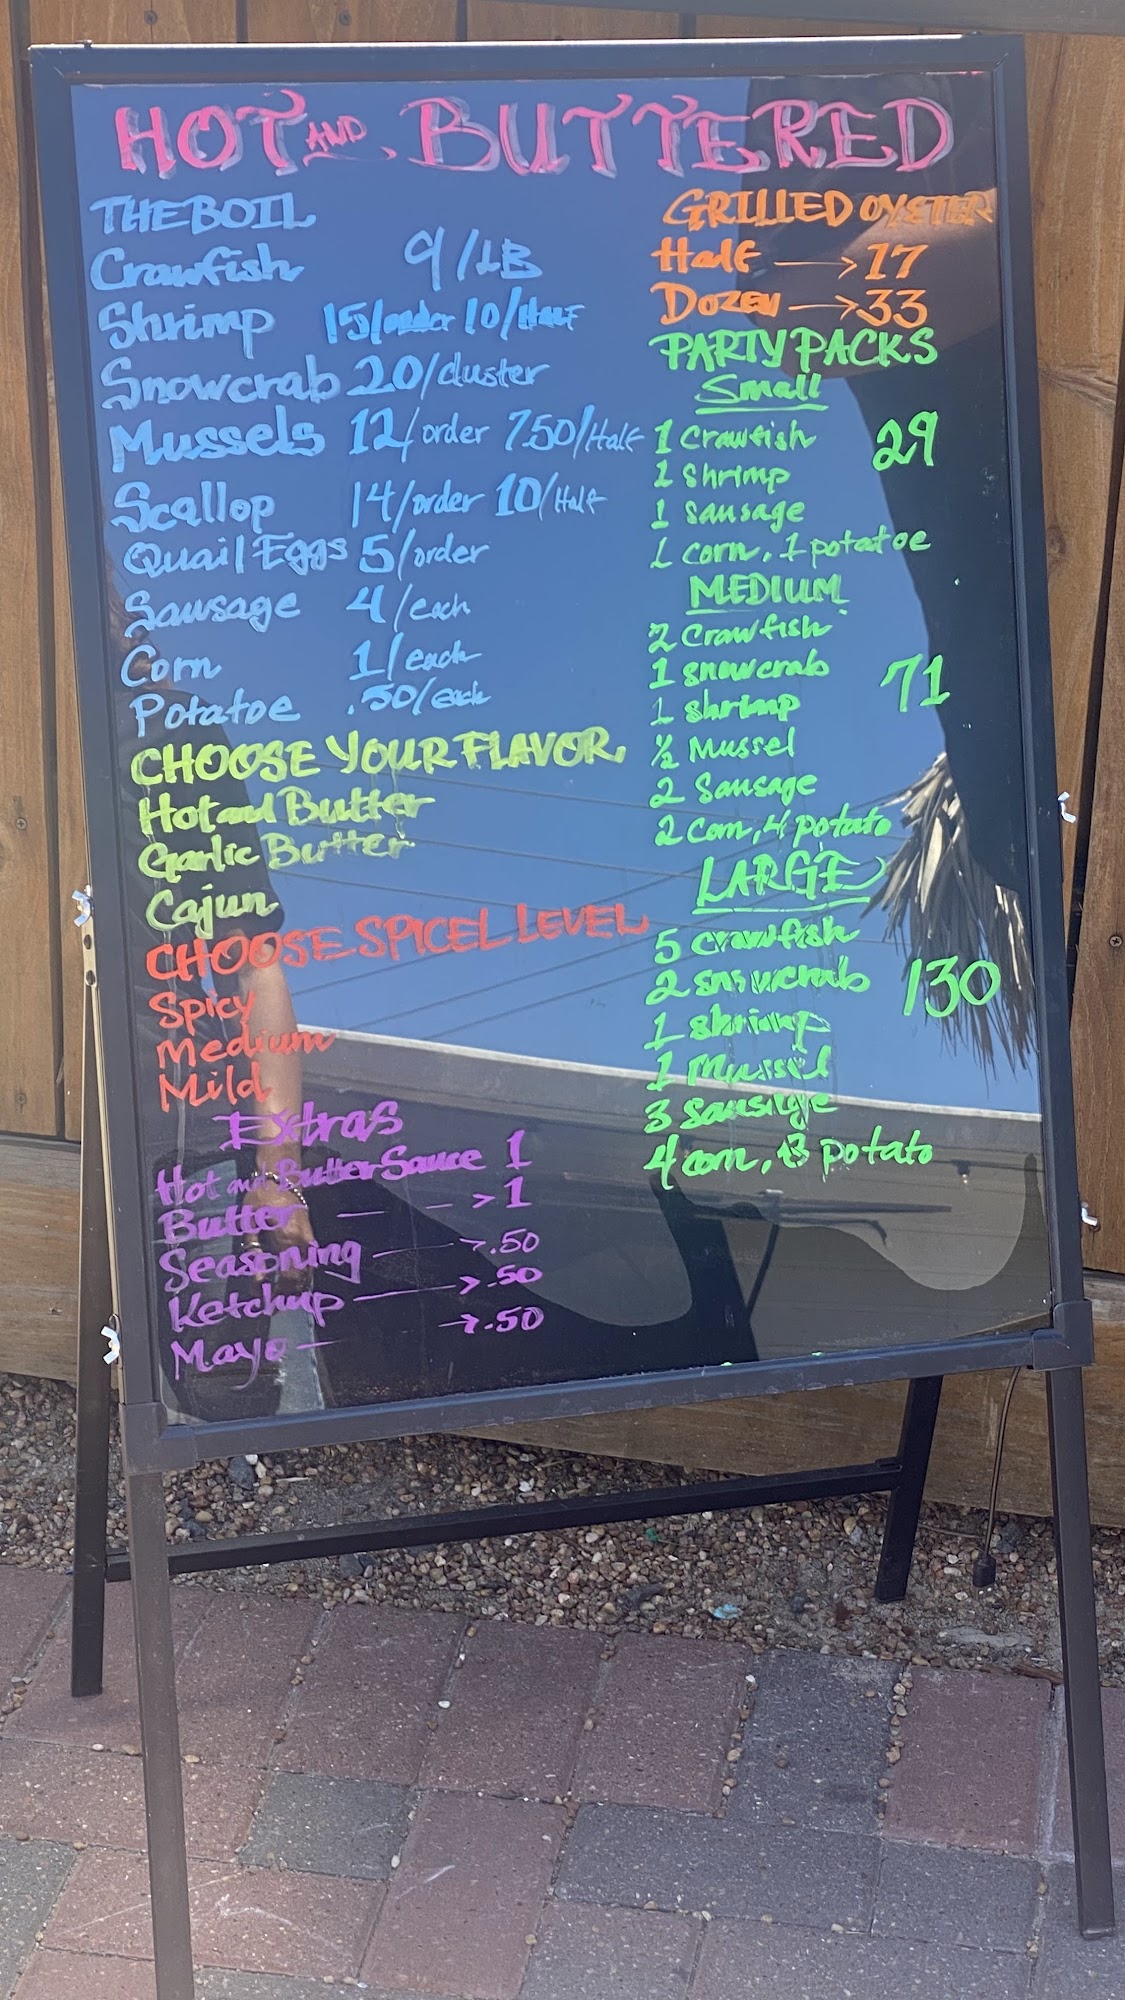 HOT AND BUTTERED
THE BOIL
Crawfish 9/LB
Shrimp 15/order 10/Half
Snowcrab 20/cluster
Mussels 12/order 7.50/Half
Scallop 14/order 10/Half
Quail Eggs 5/order
Sausage 4/each
Corn 1/each
Potatoe .50/each
CHOOSE YOUR FLAVOR
Hot and Butter
Garlic Butter
Cajun
CHOOSE SPICEL LEVEL
Spicy
Medium
Mild
Extras
Hot and Butter Sauce 1
Butter → 1
Seasoning → .50
Ketchup → .50
Mayo → .50
GRILLED OYSTER
Half → 17
Dozen → 33
PARTY PACKS
Small
1 Crawfish 29
1 Shrimp
1 Sausage
1 corn, 1 potatoe
MEDIUM
2 Crawfish
1 snowcrab 71
1 shrimp
½ Mussel
2 Sausage
2 corn, 4 potato
LARGE
5 crawfish
2 snowcrab 130
1 shrimp
1 Mussel
3 Sausage
4 corn, potato